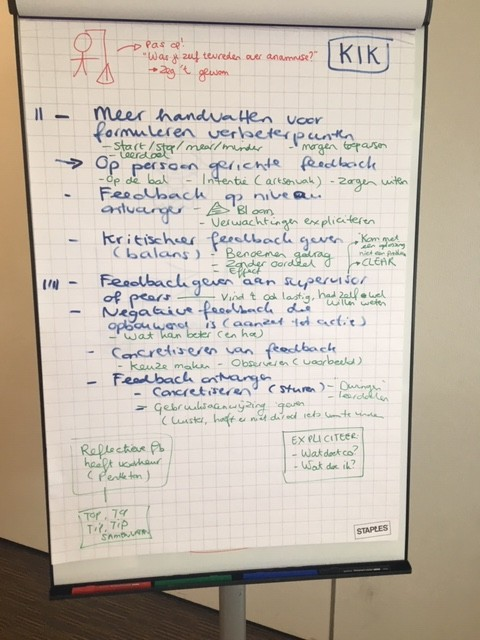 Pas op!
"Was je zelf tevreden over anamnese?"
→ Zeg 't gewoon
KIK
II - Meer handvatten voor
formuleren verbeterpunten
- Start/stop/meer/minder - morgen toepassen
- leerdoel
→ Op persoon gerichte feedback
- Op de bal - Intentie (artsenvak) - Zorgen uiten
- Feedback op niveau
ontvanger - Bloom
- Verwachtingen expliciteren
- Kritischer feedback geven
(balans) - Benoemen gedrag
- Zonder oordeel
Effect
Kom met
een oplossing
niet een probleem
CLEAR
IIII - Feedback geven aan supervisor
of peers - Vind 't ook lastig, had zelf wel
willen weten
- Negatieve feedback die
opbouwend is (aanzet tot actie)
- Wat kan beter (en hoe)
- Concretiseren van feedback
- Keuze maken - Observeren (voorbeeld)
- Feedback ontvangen
- Concretiseren (sturen) -
leerdoelen
= Gebruiksaanwijzing geven
(Luister, hoeft er niet direct iets van te vinden
Reflectieve fb
heeft voorkeur
(Pendleton)
TOP, TOP
TIP, TIP
SAMENVATTEN
EXPLICITEER:
- Wat doet co?
- Wat doe ik?
STAPLES